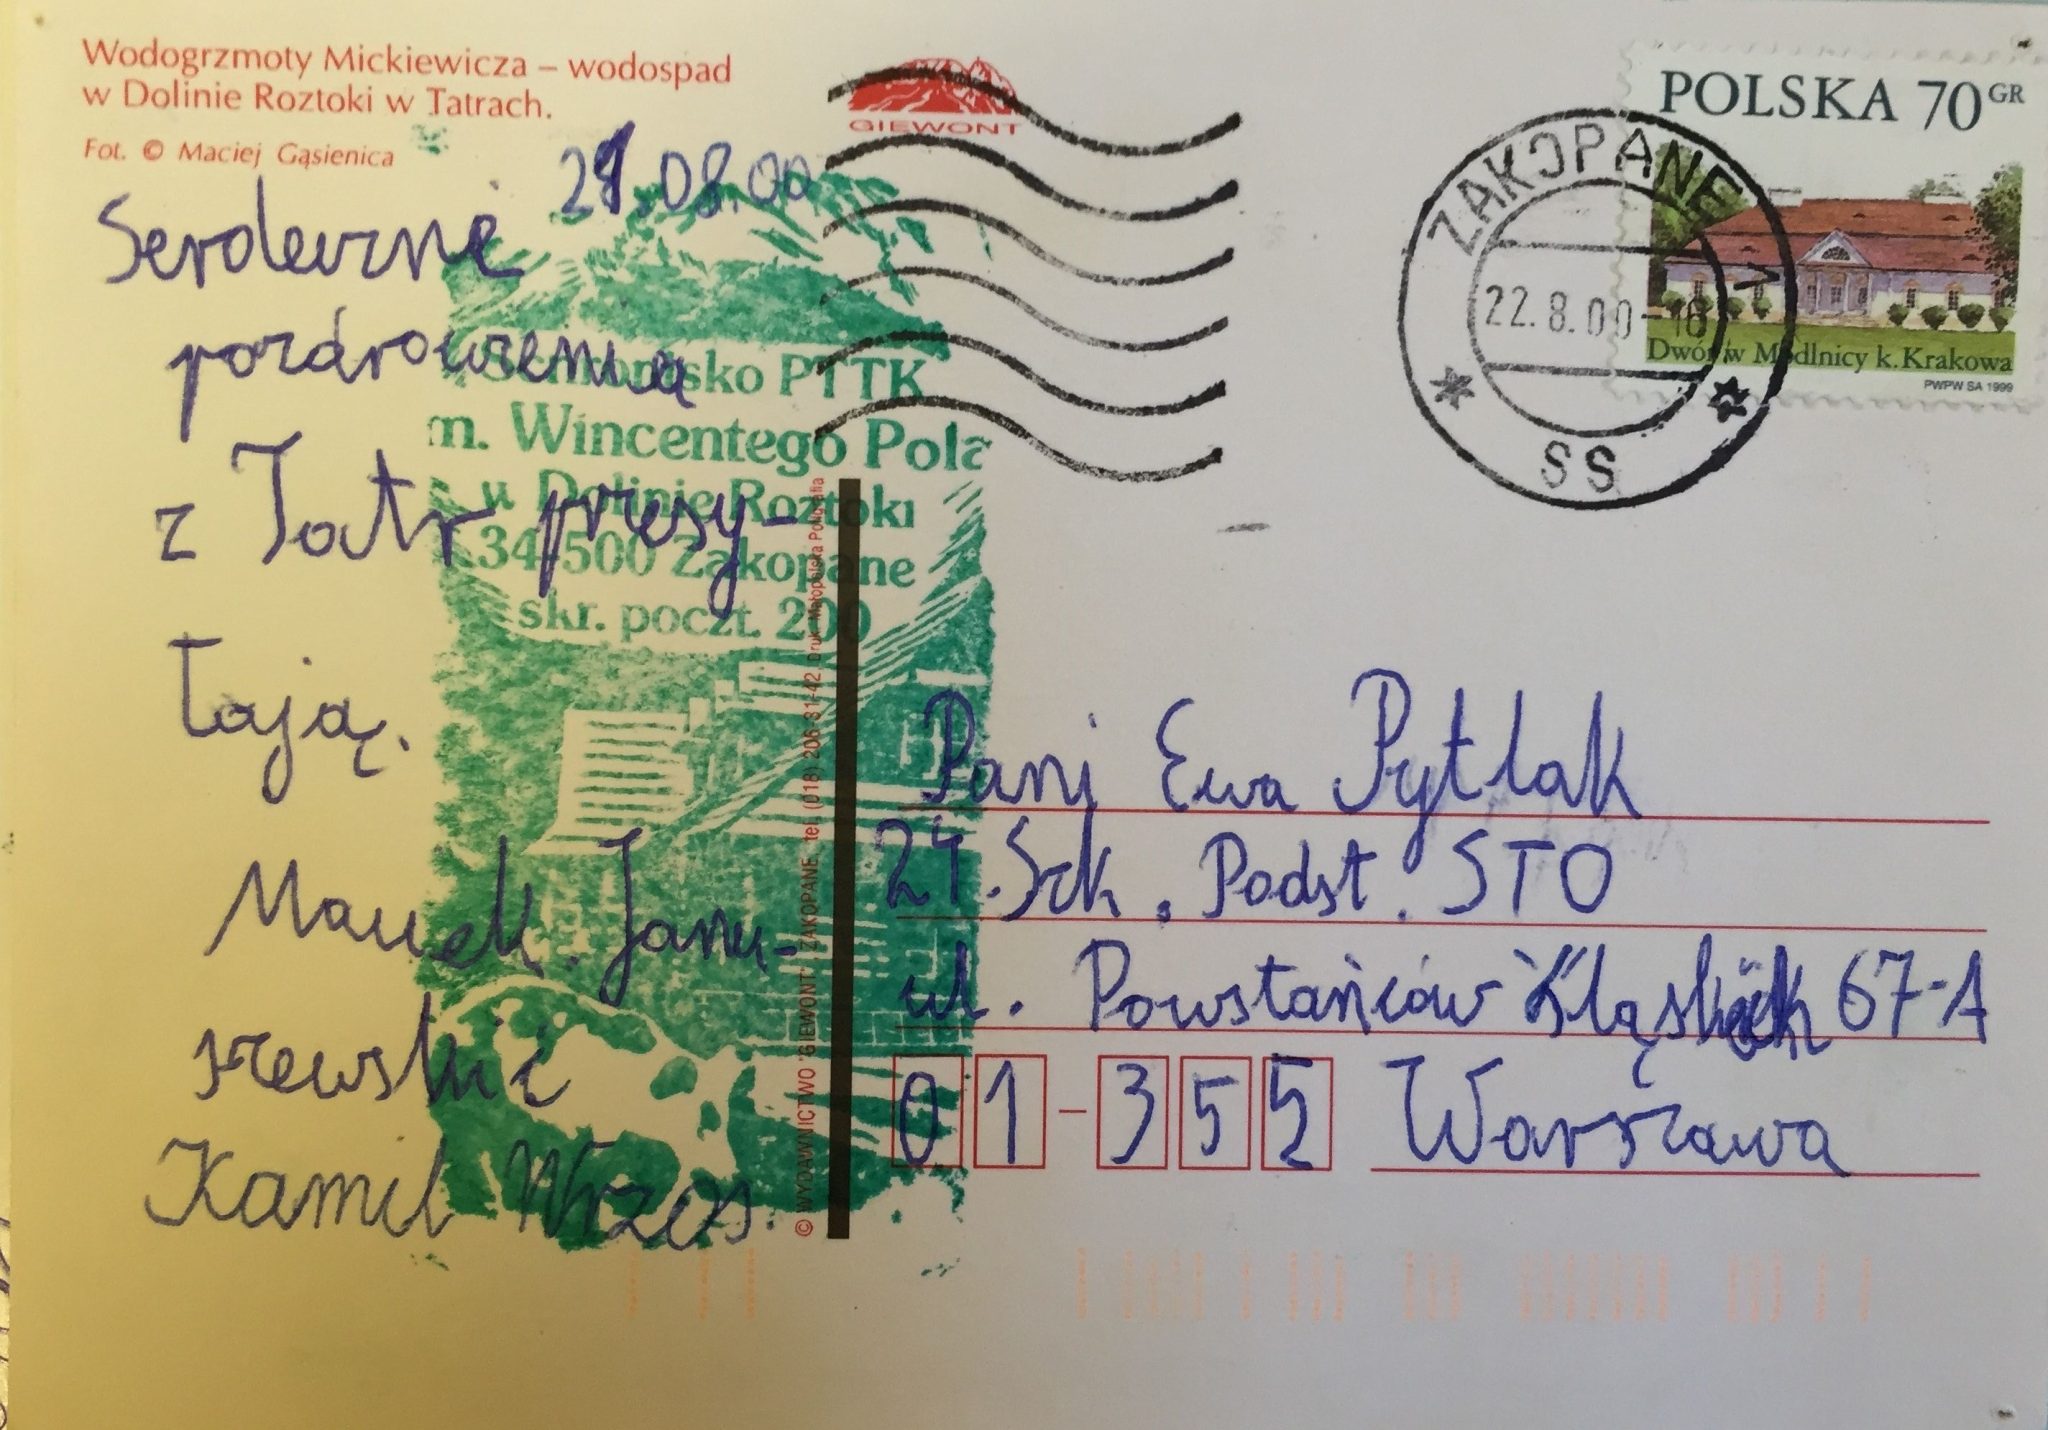 Wodogrzmoty Mickiewicza – wodospad
w Dolinie Roztoki w Tatrach.
Fot. © Maciej Gąsienica
GIEWONT
POLSKA 70 GR
Dwór w Modlnicy k. Krakowa
PWPW SA 1999
ZAKOPANE 1
22.8.00-16
SS
.08.00
Serdeczne
pozdrowienia
z Tatr przesy-
łają.
Maciek Janu-
szewski i
Kamil Wrzos.
Schronisko PTTK
im. Wincentego Pola
w Dolinie Roztoki
34-500 Zakopane
skr. poczt. 200
© WYDAWNICTWO "GIEWONT" ZAKOPANE, tel. (018) 206-81-42. Druk: Małopolska Poligrafia
Pani Ewa Pytlak
24. Szk. Podst. STO
ul. Powstańców 67-A
01-355 Warszawa